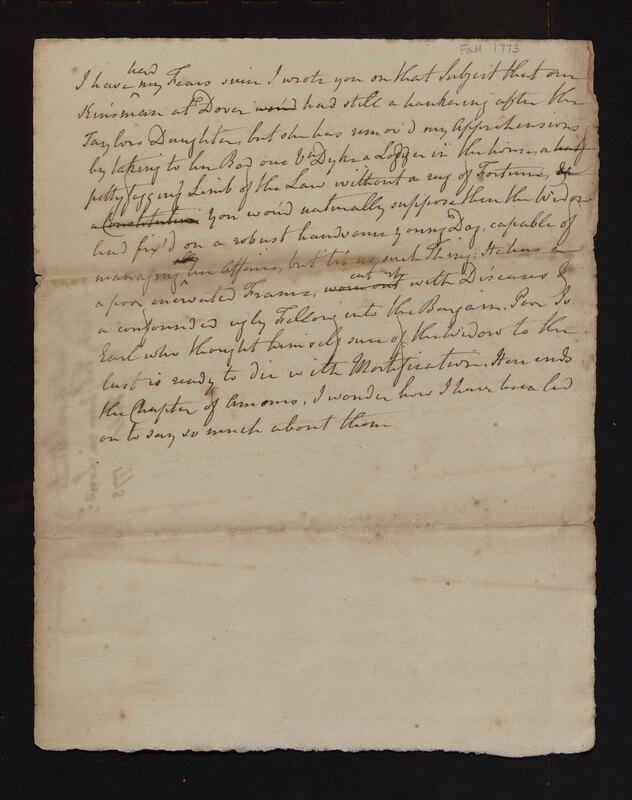 Fall 1773
I have had my Fears since I wrote you on that Subject that our
Kinsman at Dover had still a hankering after the
Taylors Daughter, but she has remov'd my Apprehensions
by taking to her Bed one VnDyke a Lodger in the house, a
pettyfogging Limb of the Law without a rag of Fortune, or
a Constitution You wou'd naturally suppose then the Widow
had fix'd on a robust handsome young Dog, capable of
managing all her Affairs, but 'tis no such Thing; He has
a poor enervated Frame, worn out eat up with Diseases &
a confounded ugly Fellow into the Bargain. Poor Jo.
Earl who thought himself sure of the Widow to the
last is ready to die with Mortification. Here ends
the Chapter of Amours, I wonder how I have been led
on to say so much about them